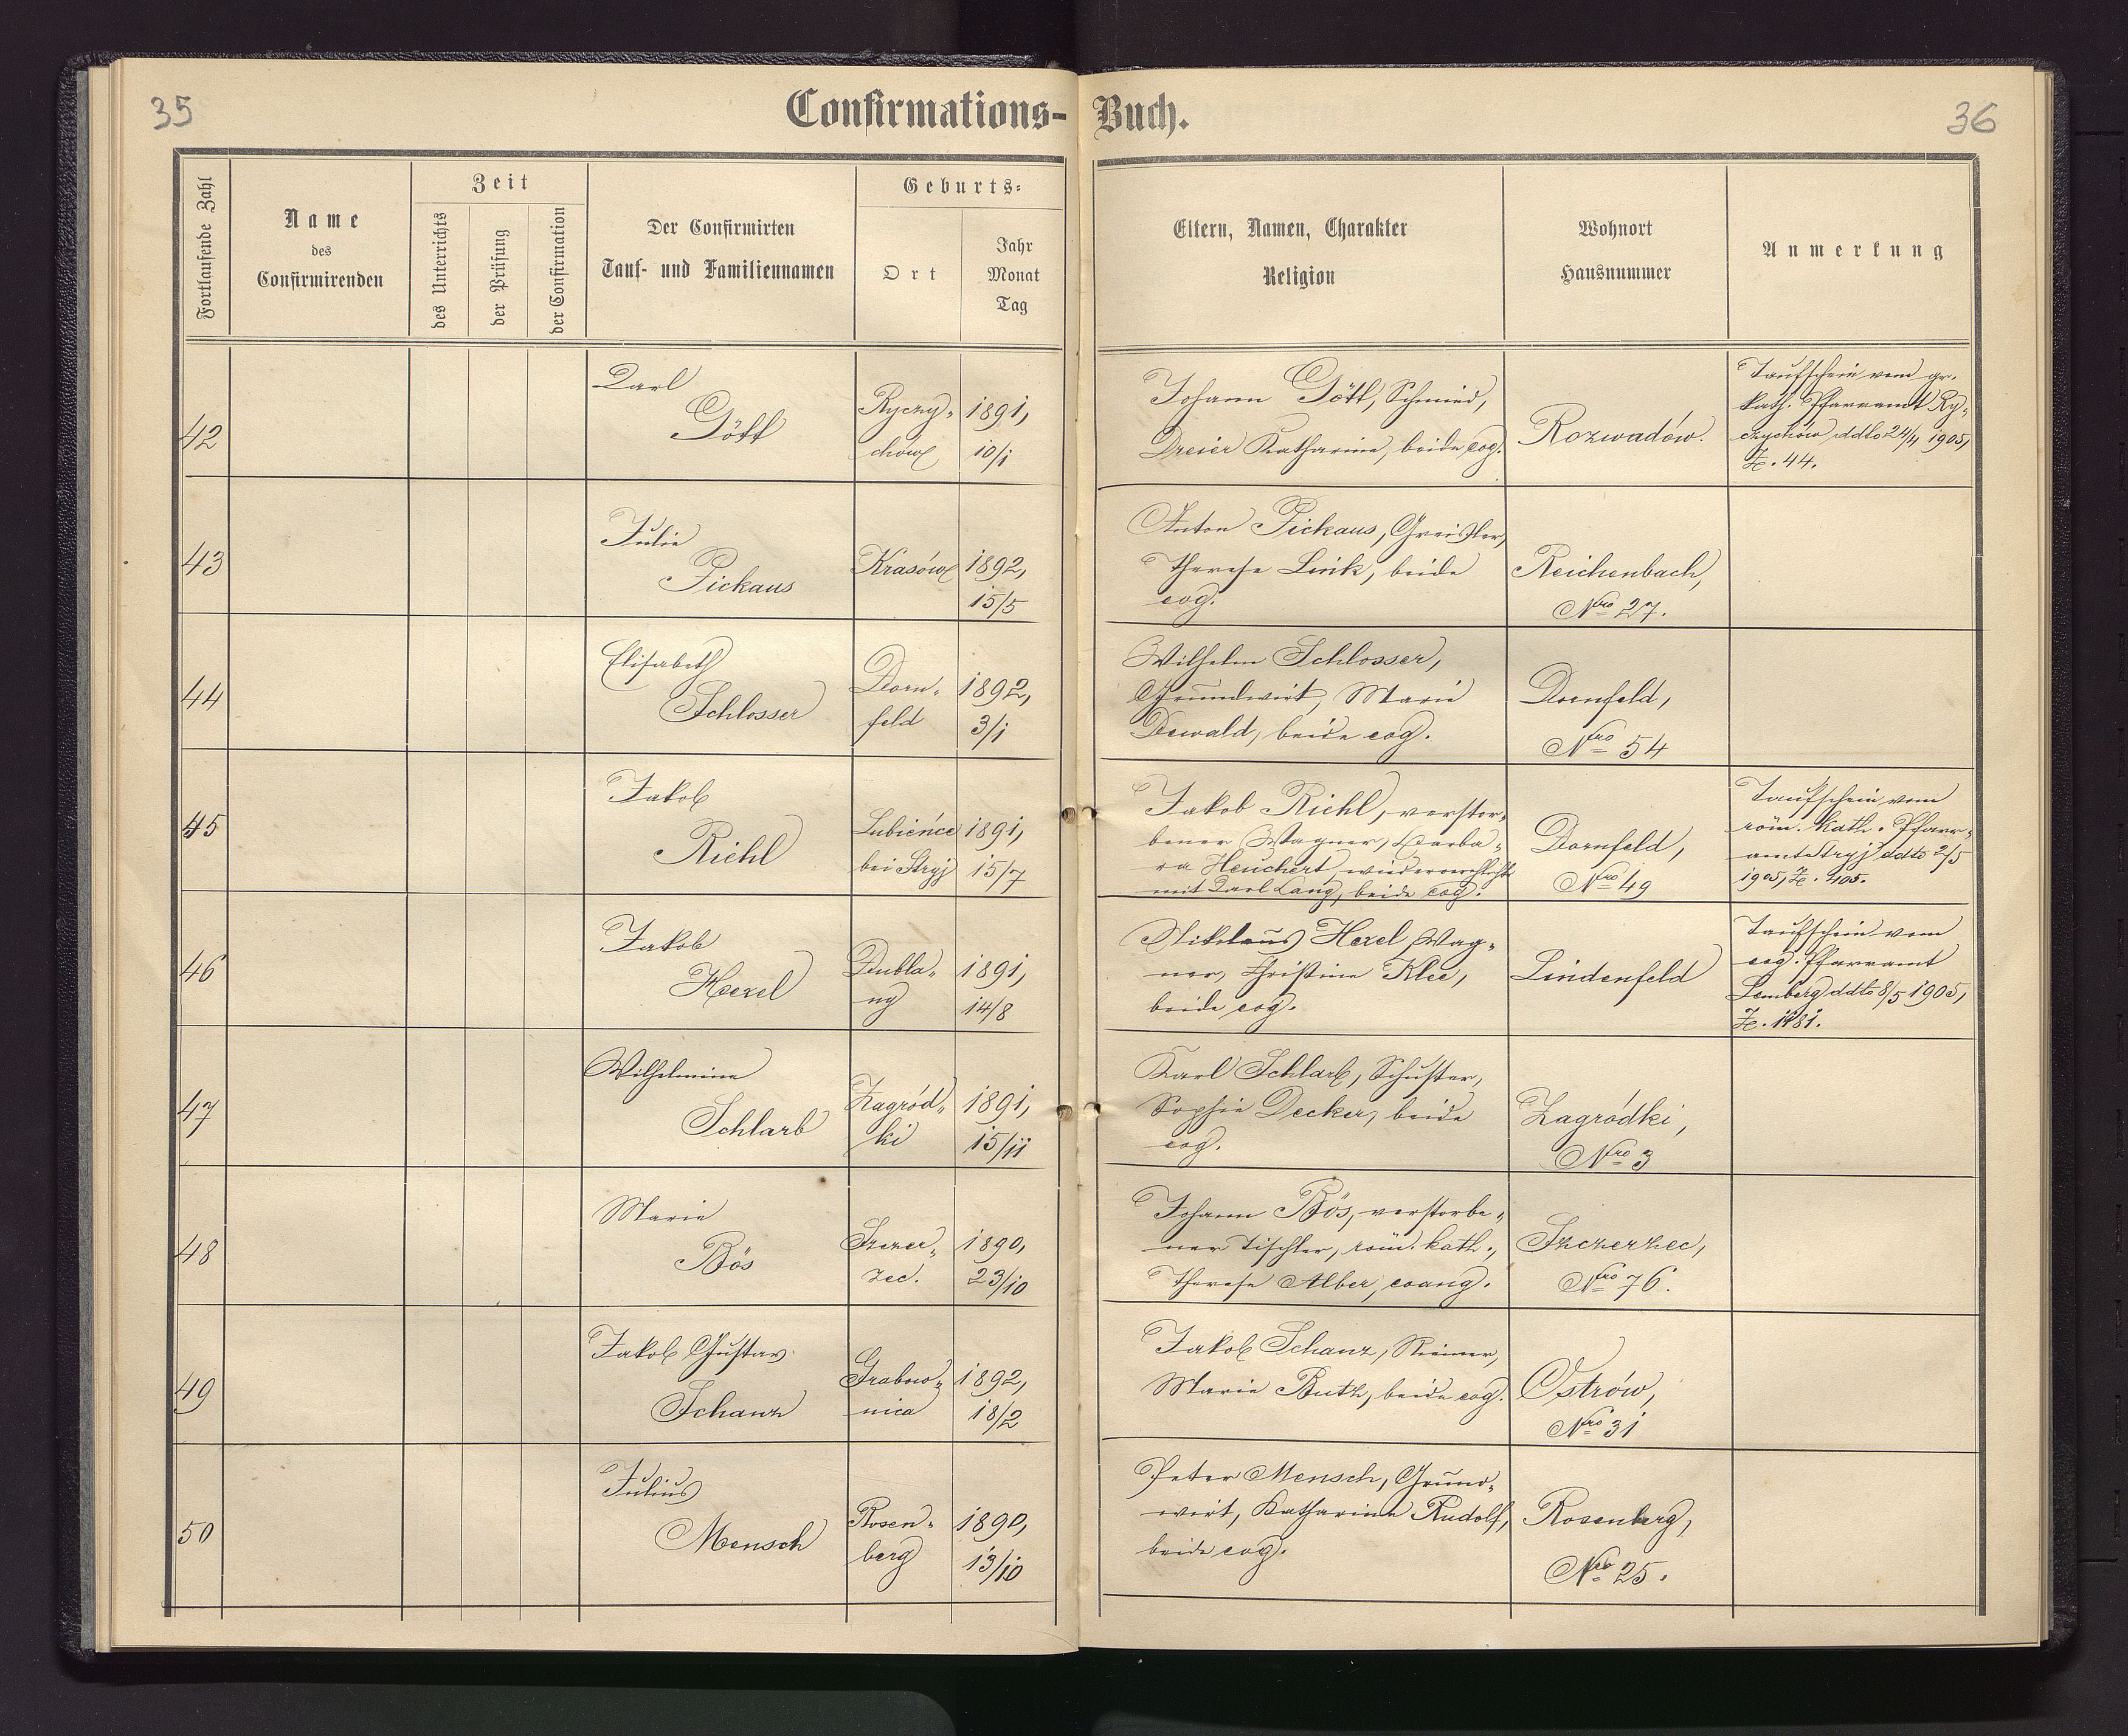 35
Confirmations-Buch.
36
Fortlaufende Zahl
Name
des
Confirmirenden
Zeit
des Unterrichts
der Prüfung
der Confirmation
Der Confirmirten
Tauf- und Familiennamen
Geburts-
Ort
Jahr
Monat
Tag
Eltern, Namen, Charakter
Religion
Wohnort
Hausnummer
Anmerkung
42
Carl
Gött
Ryczy-
chów
1891,
10/1
Johann Gött, Schmied,
Dreier Katharine, beide evg.
Rozwadów.
Taufschein vom gr.
kath. Pfarramt Ry-
czychów ddto 24/4 1905,
Z. 44.
43
Julie
Pickaus
Krasów
1892,
15/5
Anton Pickaus, Greisler,
Therese Link, beide
evg.
Reichenbach,
Nro 27.
44
Elisabeth
Schlosser
Dorn-
feld
1892,
3/1
Wilhelm Schlosser,
Grundwirt, Marie
Dewald, beide evg.
Dornfeld,
Nro 54
45
Jakob
Riehl
Lubieńce
bei Stryj
1891,
15/7
Jakob Riehl, verstor-
bener Wagner, Barba-
ra Heuchert, wiederverehlicht
mit Carl Lang, beide evg.
Dornfeld,
Nro 49
Taufschein vom
röm. kath. Pfarr-
amte Stryj ddto 2/5
1905, Z. 405.
46
Jakob
Hexel
Dubla-
ny
1891,
14/8
Nikolaus Hexel, Wag-
ner, Christine Klee,
beide evg.
Lindenfeld
Taufschein vom
evg. Pfarramt
Lemberg ddto 8/5 1905,
Z. 1181.
47
Wilhelmine
Schlarb
Zagród-
ki
1891,
15/11
Karl Schlarb, Schuster,
Sophie Decker, beide
evg.
Zagródki,
Nro 3
48
Marie
Bös
Szczer-
zec.
1890,
23/10
Johann Bös, verstorbe-
ner Tischler, röm. kath.,
Therese Alber, evang.
Szczerzec,
Nro 76.
49
Jakob Gustav
Schanz
Grabow-
nica
1892,
18/2
Jakob Schanz, Riemer,
Marie Butz, beide evg.
Ostrów,
Nro 31
50
Julius
Mensch
Rosen-
berg
1890,
13/10
Peter Mensch, Grund-
wirt, Katharine Rudolf,
beide evg.
Rosenberg,
Nro 25.